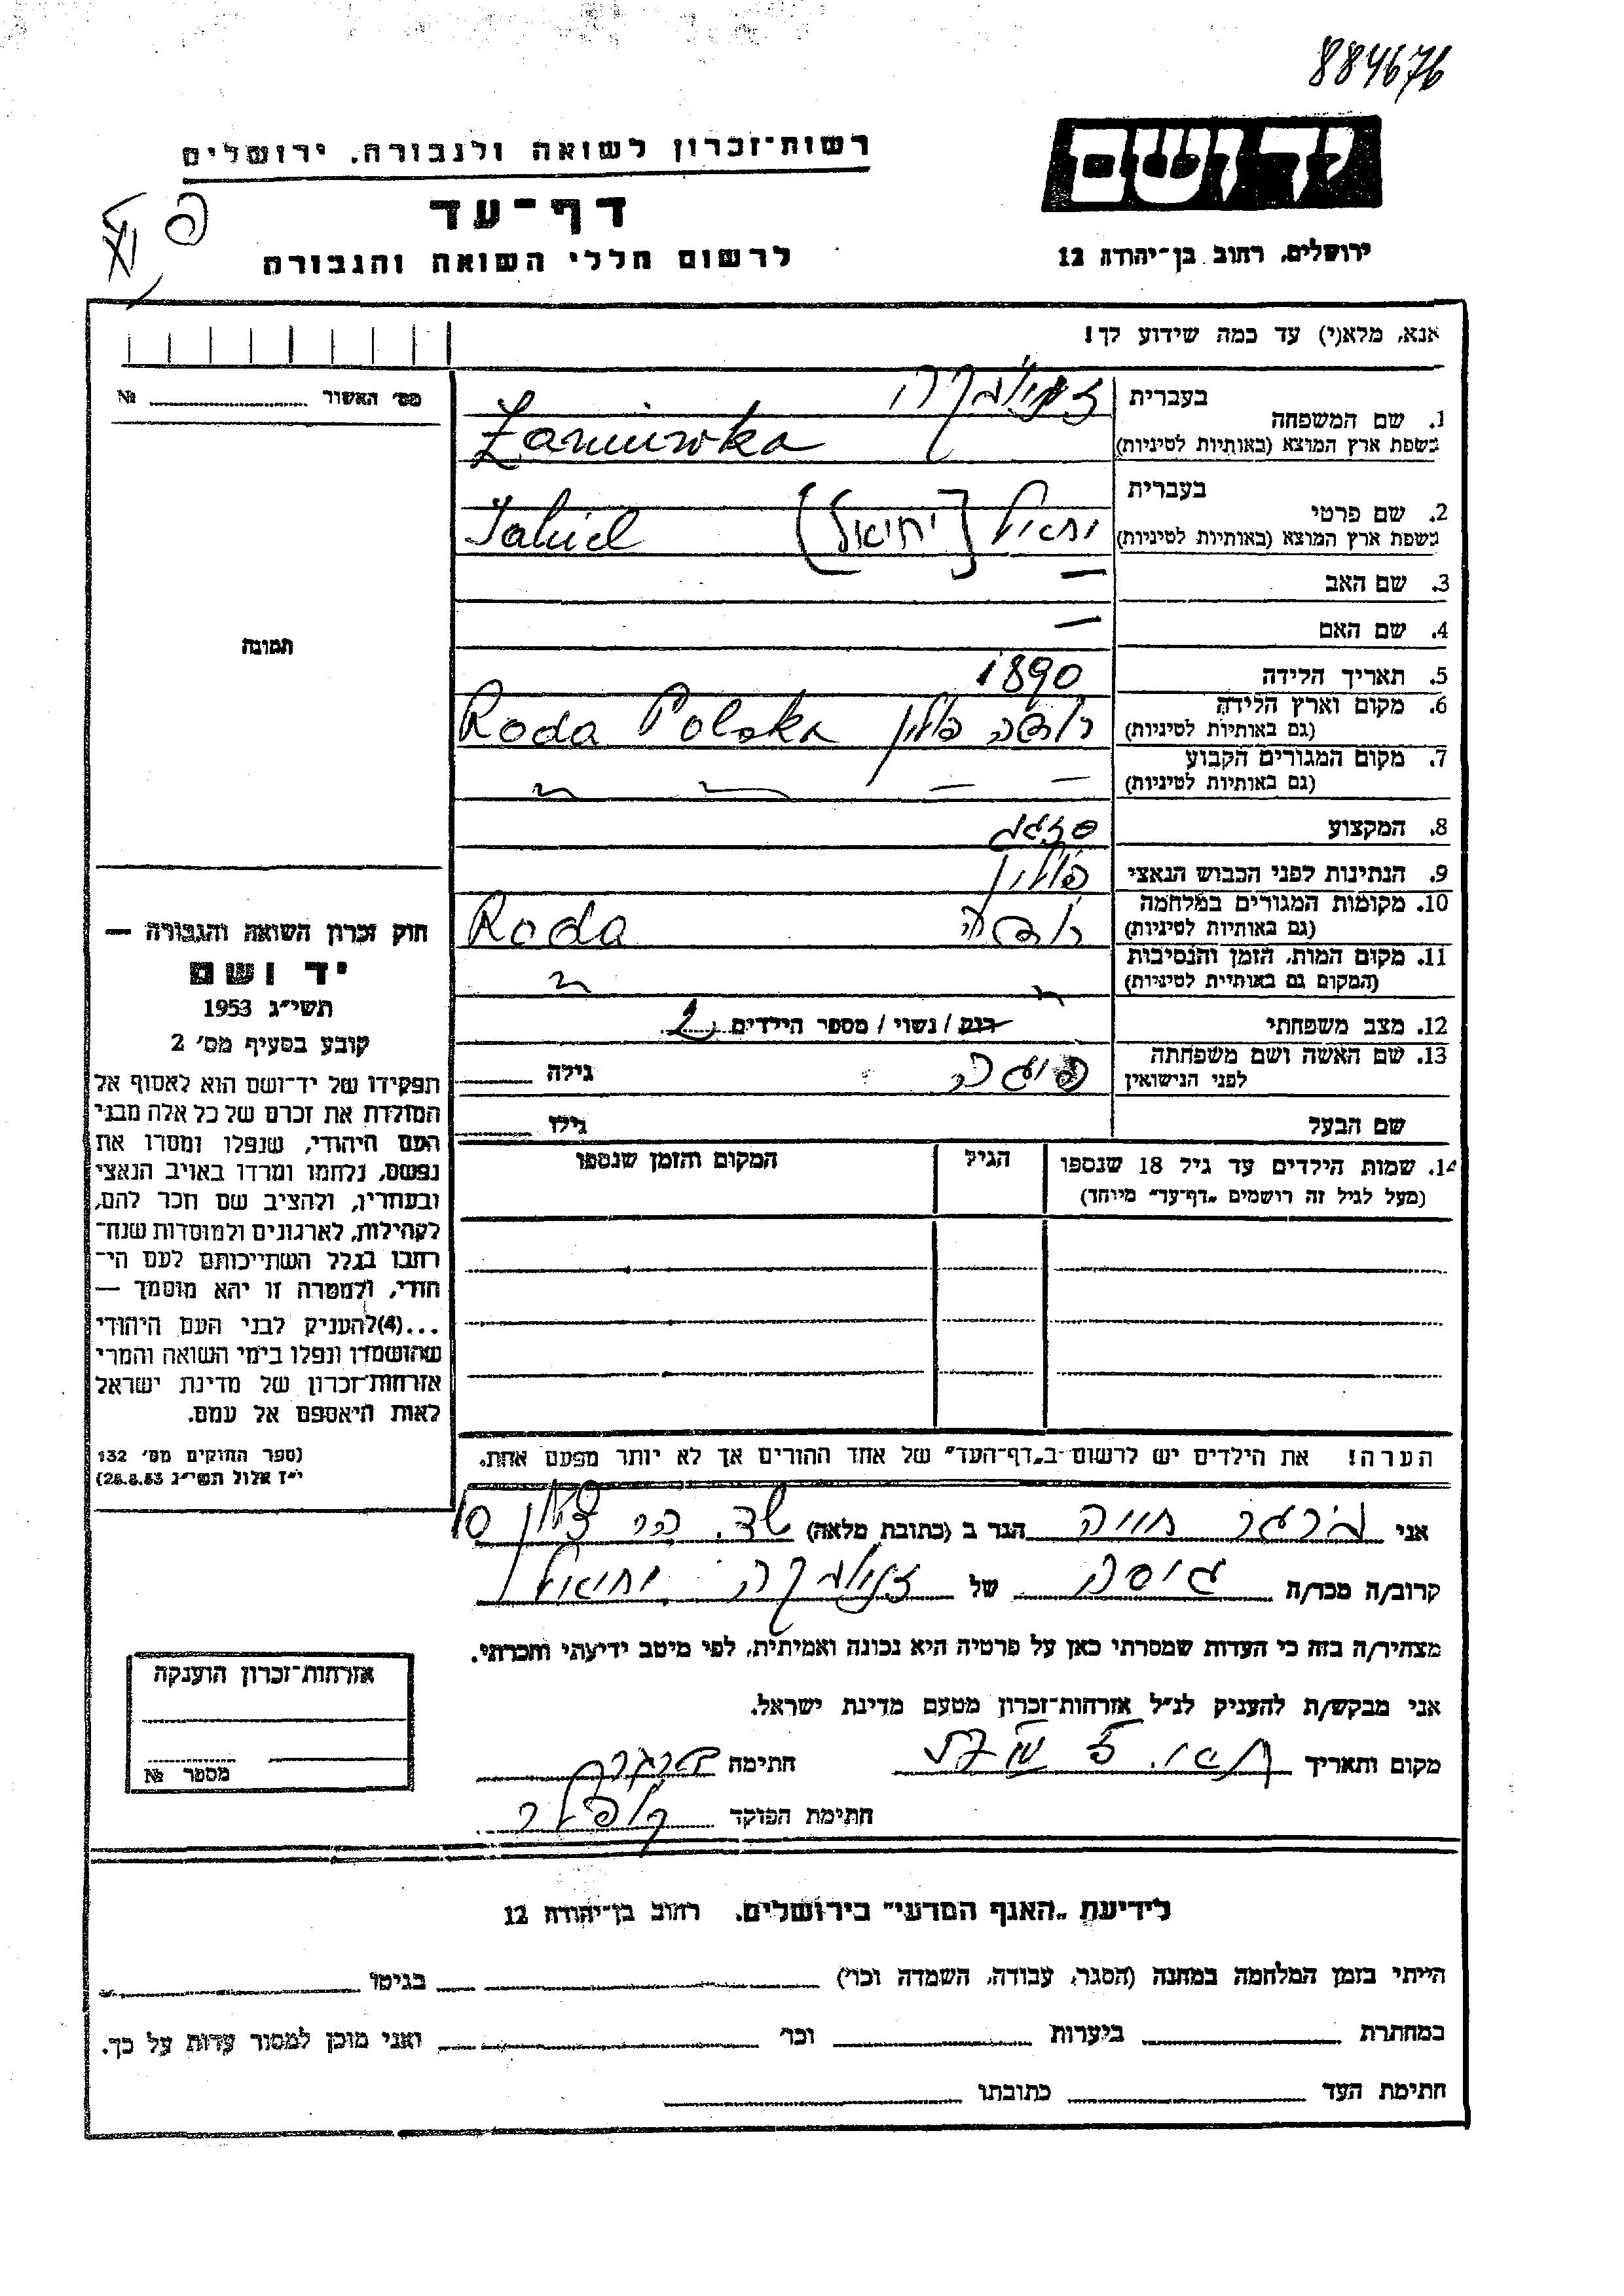 884676
יד ושם
רשות־זכרון לשואה ולגבורה, ירושלים
דף־עד
לרשום חללי השואה והגבורה
ירושלים, רחוב בן־יהודה 12
אנא, מלא(י) עד כמה שידוע לך!
מס׳ האשור № ....................
1. שם המשפחה
בעברית
בשפת ארץ המוצא (באותיות לטיניות)
Żarnuwka
2. שם פרטי
בעברית
בשפת ארץ המוצא (באותיות לטיניות)
[יחיאל] Jahiel
3. שם האב —
4. שם האם —
תמונה
5. תאריך הלידה 1890
6. מקום וארץ הלידה
(גם באותיות לטיניות)
פולין Roda Polska
7. מקום המגורים הקבוע
(גם באותיות לטיניות)
— —
8. המקצוע
9. הנתינות לפני הכבוש הנאצי פולין
10. מקומות המגורים במלחמה
(גם באותיות לטיניות)
Roda
11. מקום המות, הזמן והנסיבות
(המקום גם באותיות לטיניות)
12. מצב משפחתי רווק / נשוי / מספר הילדים 2
13. שם האשה ושם משפחתה
לפני הנישואין
גילה
שם הבעל גילו
14. שמות הילדים עד גיל 18 שנספו
(מעל לגיל זה רושמים „דף־עד״ מיוחד)
הגיל
המקום והזמן שנספו
חוק זכרון השואה והגבורה —
יד ושם
תשי״ג 1953
קובע בסעיף מס׳ 2
תפקידו של יד־ושם הוא לאסוף אל
המולדת את זכרם של כל אלה מבני
העם היהודי, שנפלו ומסרו את
נפשם, נלחמו ומרדו באויב הנאצי
ובעוזריו, ולהציב שם וזכר להם,
לקהילות, לארגונים ולמוסדות שנח־
רבו בגלל השתייכותם לעם הי־
הודי, ולמטרה זו יהא מוסמך —
...(4)להעניק לבני העם היהודי
שהושמדו ונפלו בימי השואה והמרי
אזרחות־זכרון של מדינת ישראל
לאות היאספם אל עמם.
(ספר החוקים מס׳ 132
י״ז אלול תשי״ג 28.8.53)
הערה! את הילדים יש לרשום ב„דף־העד״ של אחד ההורים אך לא יותר מפעם אחת.
אני חויה הגר ב (כתובת מלאה)
קרוב/ה מכר/ה גיסה של יחיאל
מצהיר/ה בזה כי העדות שמסרתי כאן על פרטיה היא נכונה ואמיתית, לפי מיטב ידיעתי והכרתי.
אני מבקש/ת להעניק לנ״ל אזרחות־זכרון מטעם מדינת ישראל.
מקום ותאריך חתימה
חתימת הפוקד
אזרחות־זכרון הוענקה
מספר №
לידיעת „האגף המדעי״ בירושלים, רחוב בן־יהודה 12
הייתי בזמן המלחמה במחנה (הסגר, עבודה, השמדה וכו׳) בגיטו
במחתרת ביערות וכו׳ ואני מוכן למסור עדות על כך.
חתימת העד כתובתו